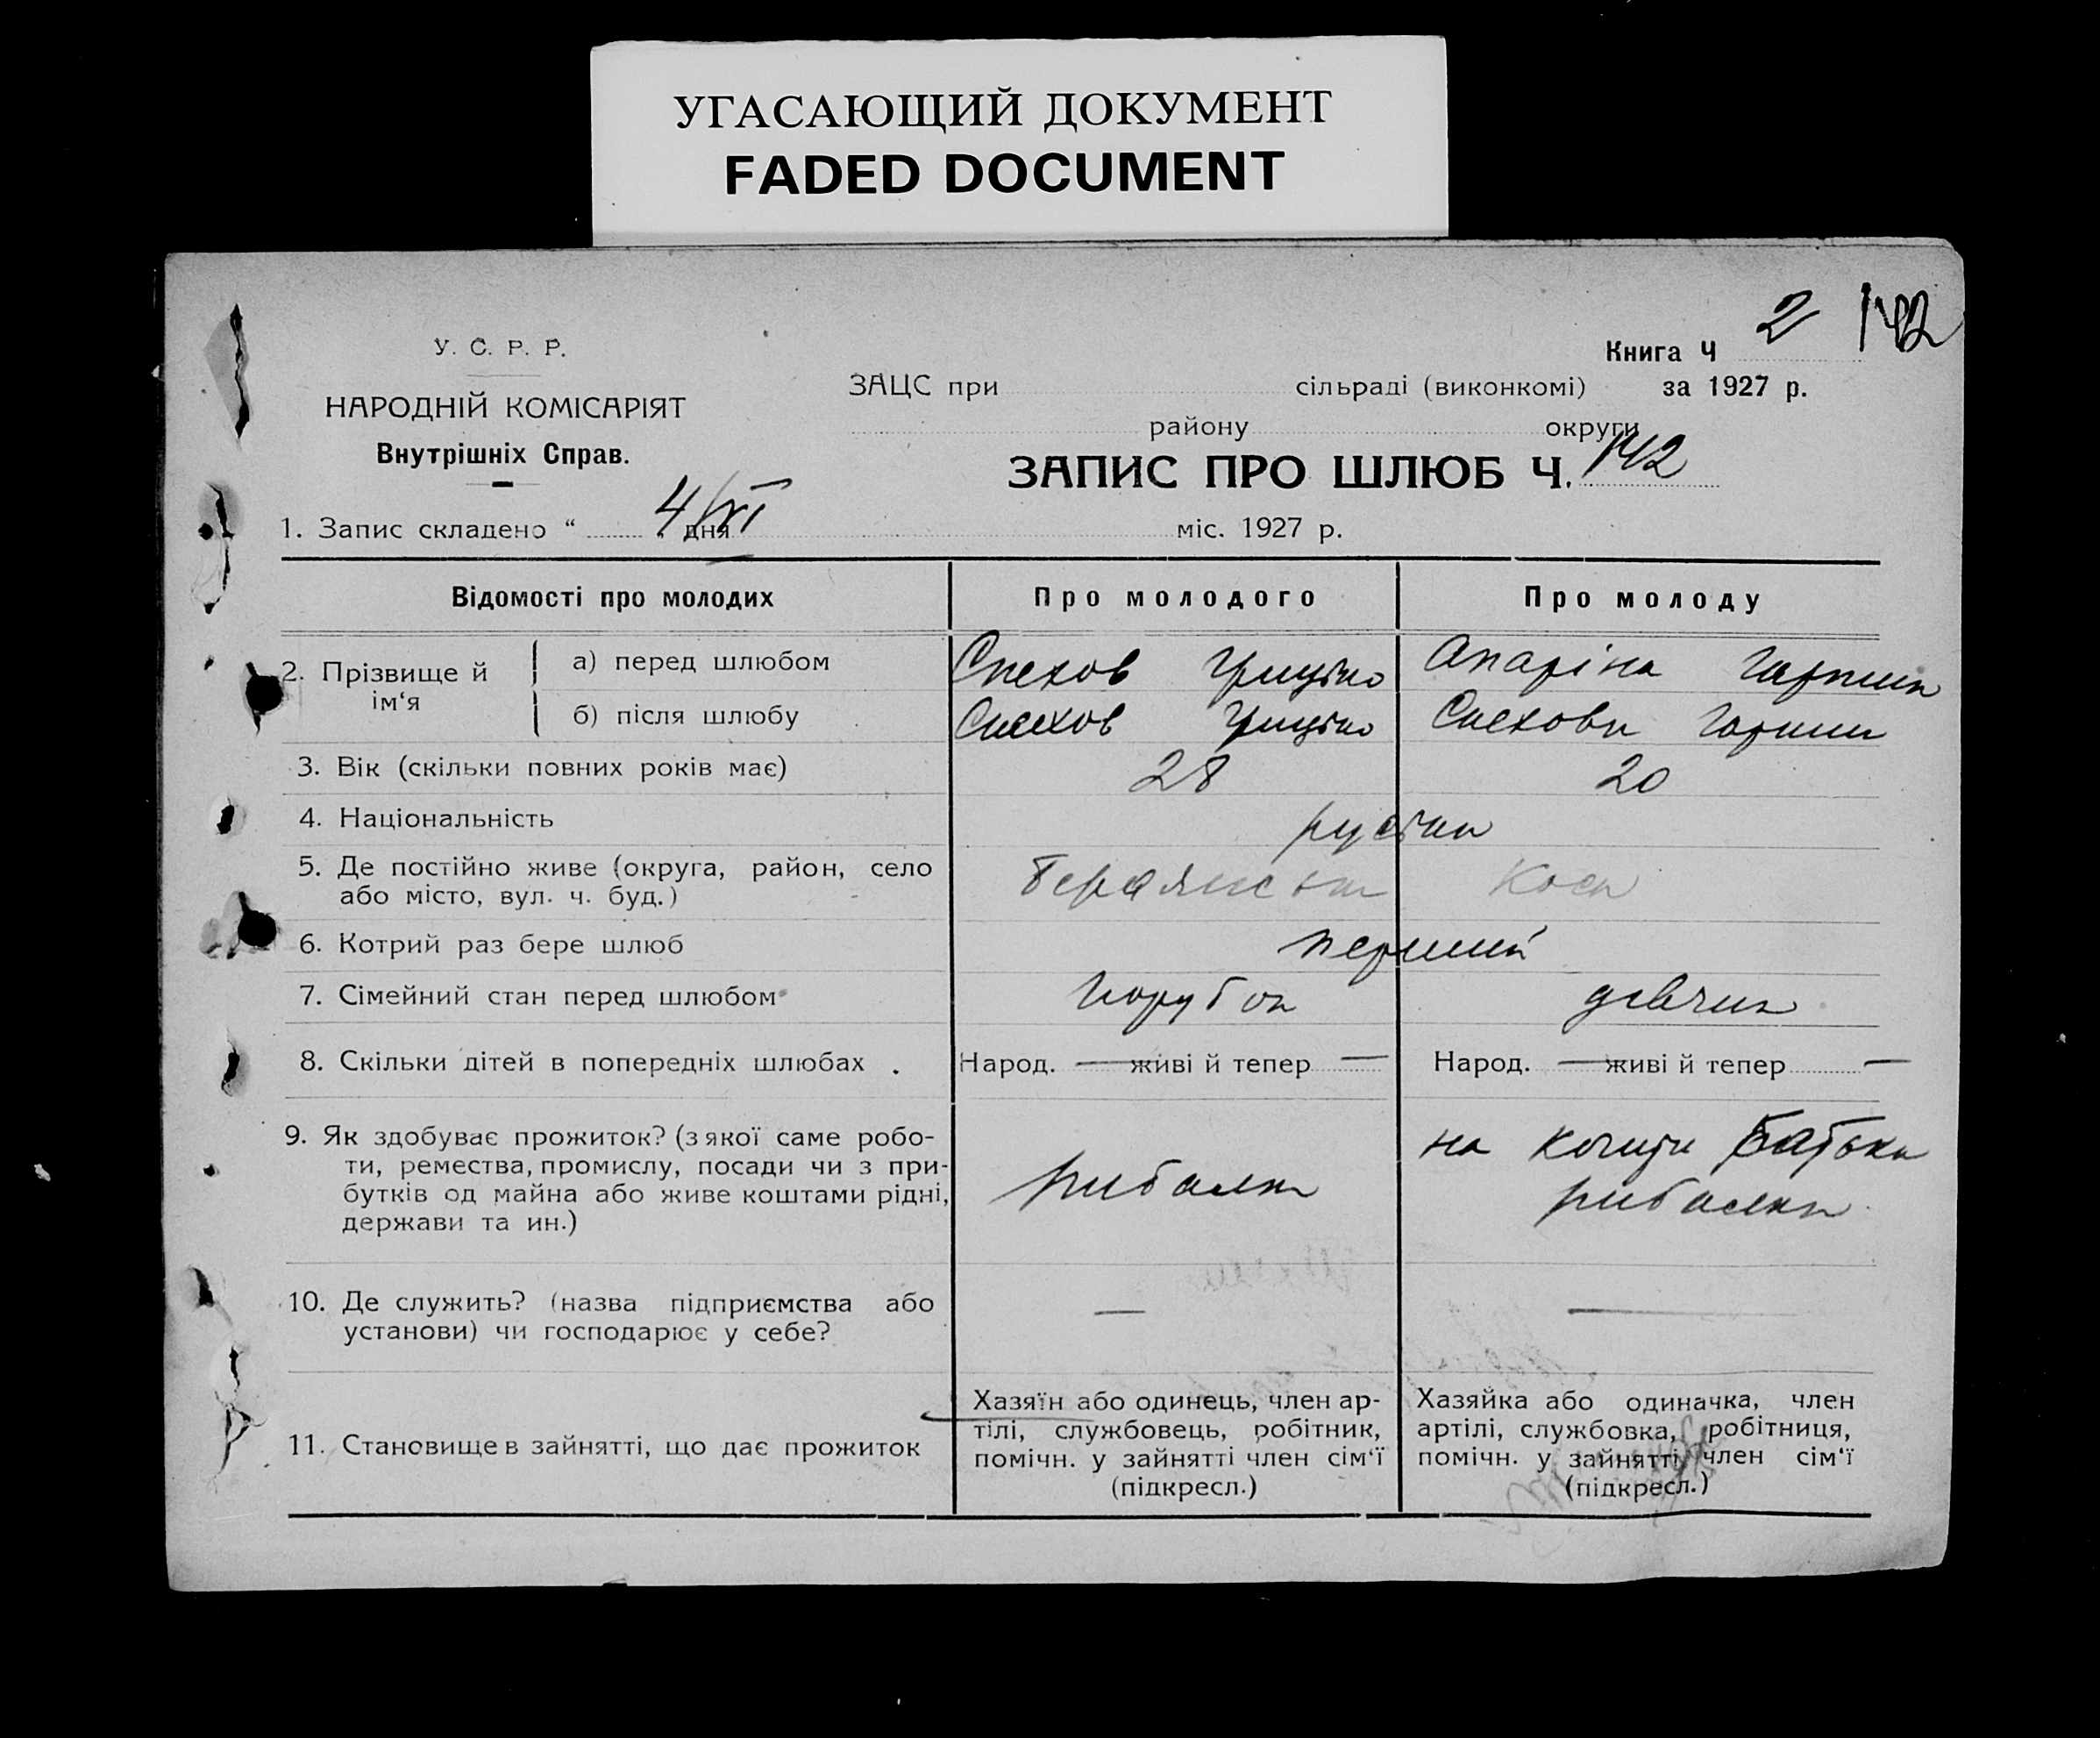 УГАСАЮЩИЙ ДОКУМЕНТ
FADED DOCUMENT
2 142
У. С. Р. Р.
НАРОДНІЙ КОМІСАРІЯТ
Внутрішніх Справ.
Книга Ч
ЗАЦС при сільраді (виконкомі) за 1927 р.
району округи
ЗАПИС ПРО ШЛЮБ Ч. 142
1. Запис складено “ 4/XI дня міс. 1927 р.
Відомості про молодих Про молодого Про молоду
2. Прізвище й ім‘я
а) перед шлюбом Спехов Грицько Апаріна
б) після шлюбу Спехов Грицько Спехова
3. Вік (скільки повних років має) 28 20
4. Національність
5. Де постійно живе (округа, район, село
або місто, вул. ч. буд.) Бердянська Коса
6. Котрий раз бере шлюб перший
7. Сімейний стан перед шлюбом Парубок дівчина
8. Скільки дітей в попередніх шлюбах . Народ. — живі й тепер — Народ. — живі й тепер —
9. Як здобуває прожиток? (з якої саме робо-
ти, ремества, промислу, посади чи з при-
бутків од майна або живе коштами рідні,
держави та ин.)
рибалка
на кошти батька
рибалки
10. Де служить? (назва підприємства або
установи) чи господарює у себе?
— —
11. Становище в зайнятті, що дає прожиток
Хазяїн або одинець, член ар-
тілі, службовець, робітник,
помічн. у зайнятті член сім‘ї
(підкресл.)
Хазяйка або одиначка, член
артілі, службовка, робітниця,
помічн. у зайнятті член сім‘ї
(підкресл.)